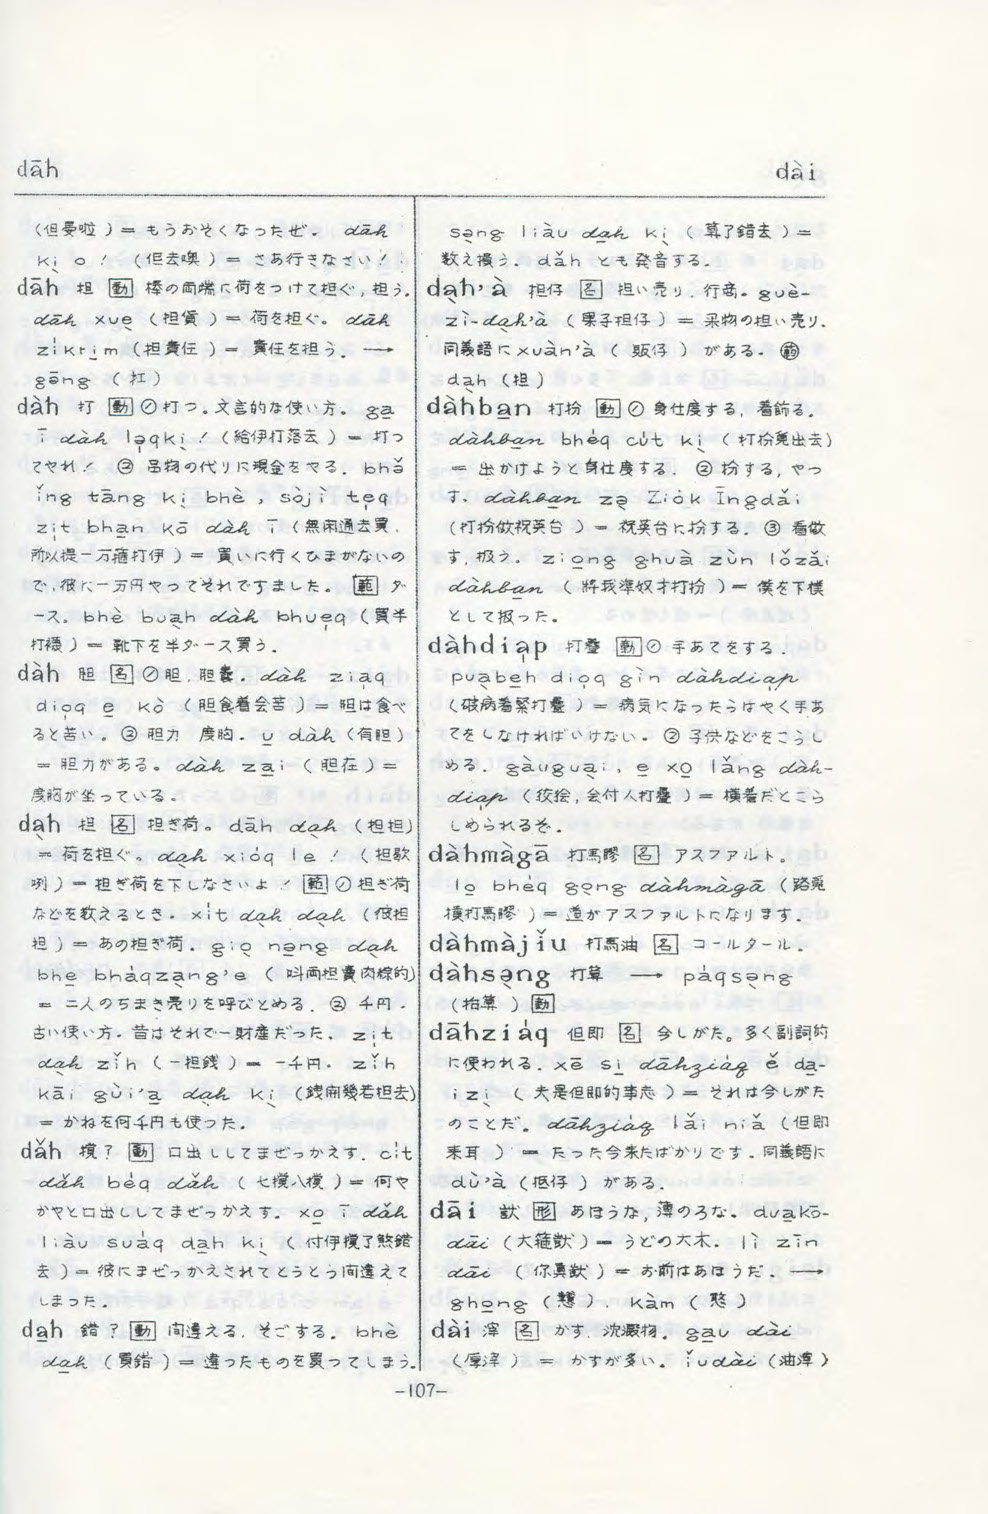 dāh
dài
(但晏啦)＝もうおそくなったぜ。dāh
kị o！(但去噢)＝さあ行きなさい！
dāh 担 [動] 棒の両端に荷をつけて担ぐ,担う.
dāh xuẹ (担貨)＝荷を担ぐ。dāh
(担責任)＝責任を担う.→
(扛)
dàh 打 [動]⊘打つ。文言的な使い方。ga
ī dàh lạqkị！(給伊打落去)＝打っ
てやれ！② 品物の代りに現金をやる. bhǎ
ǐng tāng kị bhè, sòjì tẹq
zịt bhạn kō dàh ī (無閑通去買.
所以提一万箍打伊)＝買いに行くひまがないの
で,彼に一万円やってそれですました。[範] ダ
ース. bhè buạh dàh bhueq (買半
打襪)＝靴下を半ダース買う.
dàh 胆 [名]⊘胆.胆嚢. dàh ziạq
diọq e kò (胆食着会苦)＝胆は食べ
ると苦い。② 胆力 度胸. u dàh (有胆)
＝胆力がある。dàh zại (胆在)＝
度胸が坐っている。
dạh 担 [名] 担ぎ荷。dāh dạh (担担)
＝荷を担ぐ。dạh xióq le！(担歇
咧)＝担ぎ荷を下しなさいよ！[範]⊘担ぎ荷
などを数えるとき. xít dạh dạh (彼担
担)＝あの担ぎ荷. giọ nạng dạh
bhẹ bháqzạng'e (叫両担賣肉粽的)
＝二人のちまき売りを呼びとめる. ② 千円.
古い使い方.昔はそれで一財産だった. zịt
dạh zǐh (一担銭)＝一千円. zǐh
kāi gùi'ạ dạh kị (銭開幾若担去)
＝かねを何千円も使った.
dǎh 撗？[動] 口出ししてまぜっかえす. cít
dǎh béq dǎh (七撗八撗)＝何や
かやと口出ししてまぜっかえす。xọ ī dǎh
liàu suáq dạh kị (付伊撗了煞錯
去)＝彼にまぜっかえされてとうとう間違えて
しまった.
dạh 錯？[動] 間違える.そごする. bhè
dạh (買錯)＝違ったものを買ってしまう.
sạng liàu dạh kị (算了錯去)＝
数え損う. dǎh とも発音する.
dạh'à 担仔 [名] 担い売り.行商. guè-
zì-dạh'à (果子担仔)＝果物の担い売り.
同義語に xuàn'à (販仔) がある.
dạh (担)
dàhbạn 打扮 [動]⊘身仕度する,着飾る.
dàhbạn bhéq cút kị (打扮覓出去)
＝出かけようと身仕度する. ②扮する,やつ
す. dàhbạn zẹ Ziók Īngdǎi
(打扮做祝英台)＝祝英台に扮する. ③ 看做
す,扱う. ziọng ghuà zùn lǒzǎi
dàhbạn (將我準奴才打扮)＝僕を下僕
として扱った.
dàhdiạp 打疊 [動]⊘手あてをする.
puạbẹh diọq gìn dàhdiạp
(破病着緊打疊)＝病気になったらはやく手あ
てをしなければいけない. ② 子供などをこらし
める. gàuguại, e xọ lǎng dàh-
diạp (狡獪,会付人打疊)＝横着だとこら
しめられるぞ.
dàhmàgā 打馬膠 [名] アスファルト.
lọ bhéq gọng dàhmàgā (路覓
損打馬膠)＝道がアスファルトになります.
dàhmàjǐu 打馬油 [名] コールタール.
dàhsạng 打算 → páqsạng
(拍算) [動]
dāhziáq 但即 [名] 今しがた。多く副詞的
に使われる. xē sị dāhziáq ě dạ-
izị (夫是但即的事志)＝それは今しがた
のことだ. dāhziáq lǎi niā (但即
来耳)＝たった今来たばかりです.同義語に
dù'à (抵仔) がある.
dāi 獃 [形] あほうな,薄のろな. duạkō-
dāi (大箍獃)＝うどの大木. lì zīn
dāi (你真獃)＝お前はあほうだ. →
ghọng (戇). kàm (憨)
dài 滓 [名] かす.沈澱物. gau dài
(厚滓)＝かすが多い. ǐudài (油滓)
-107-